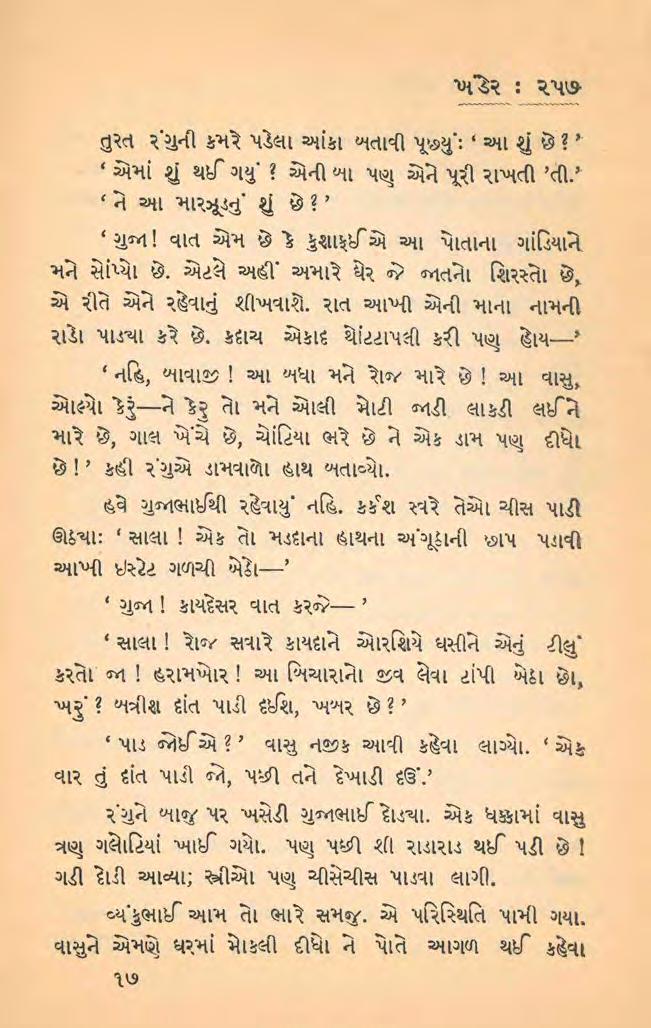 ખંડેર : ૨૫૭
તુરત રંગુની કમરે પડેલા આંકા બતાવી પૂછ્યું: ‘ આ શું છે ? ’
‘ એમાં શું થઈ ગયું ? એની બા પણ એને પૂરી રાખતી ’તી.’
‘ ને આ મારઝૂડનું શું છે ? ’
‘ ગુજા ! વાત એમ છે કે કુશાફઈએ આ પોતાના ગાંડિયાને
મને સોંપ્યો છે. એટલે અહીં અમારે ઘેર જે જાતનો શિરસ્તો છે,
એ રીતે એને રહેવાનું શીખવાશે. રાત આખી એની માના નામની
રાડો પાડ્યા કરે છે. કદાચ એકાદ થોંટટાપલી કરી પણ હોય—’
‘ નહિ, બાવાજી ! આ બધા મને રોજ મારે છે ! આ વાસુ,
ઓલ્યો કેરું—ને કેરુ તો મને ઓલી મોટી જાડી લાકડી લઈને
મારે છે, ગાલ ખેંચે છે, ચોંટિયા ભરે છે ને એક ડામ પણ દીધો
છે ! ’ કહી રંગુએ ડામવાળો હાથ બતાવ્યો.
હવે ગુજાભાઈથી રહેવાયું નહિ. કર્કશ સ્વરે તેઓ ચીસ પાડી
ઊઠ્યા: ‘ સાલા ! એક તો મડદાના હાથના અંગૂઠાની છાપ પડાવી
આખી ઇસ્ટેટ ગળચી બેઠો—’
‘ ગુજા ! કાયદેસર વાત કરજે— ’
‘ સાલા ! રોજ સવારે કાયદાને ઓરશિયે ઘસીને એનું ટીલું
કરતો જા ! હરામખોર ! આ બિચારાનો જીવ લેવા ટાંપી બેઠા છો,
ખરું ? બત્રીશ દાંત પાડી દઈશ, ખબર છે ? ’
‘ પાડ જોઈએ ? ’ વાસુ નજીક આવી કહેવા લાગ્યો. ‘ એક
વાર તું દાંત પાડી જો, પછી તને દેખાડી દઉં.’
રંગુને બાજુ પર ખસેડી ગુજાભાઈ દોડ્યા. એક ધક્કામાં વાસુ
ત્રણ ગલોટિયાં ખાઈ ગયો. પણ પછી શી રાડારાડ થઈ પડી છે !
ગડી દોડી આવ્યા; સ્ત્રીઓ પણ ચીસેચીસ પાડવા લાગી.
વ્યંકુભાઈ આમ તો ભારે સમજુ. એ પરિસ્થિતિ પામી ગયા.
વાસુને એમણે ઘરમાં મોકલી દીધો ને પોતે આગળ થઈ કહેવા
૧૭